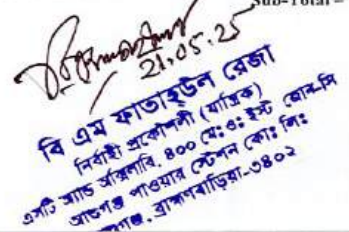 Sub-Total =
21.05.25
বি এম ফাতাহউল রেজা
নির্বাহী প্রকৌশলী (যান্ত্রিক)
এসটি অ্যান্ড অক্সিলারি, ৪০০ মেঃওঃ ইস্ট জোন-সি
আশুগঞ্জ পাওয়ার স্টেশন কোঃ লিঃ
ব্রাহ্মণবাড়িয়া-৩৪০২